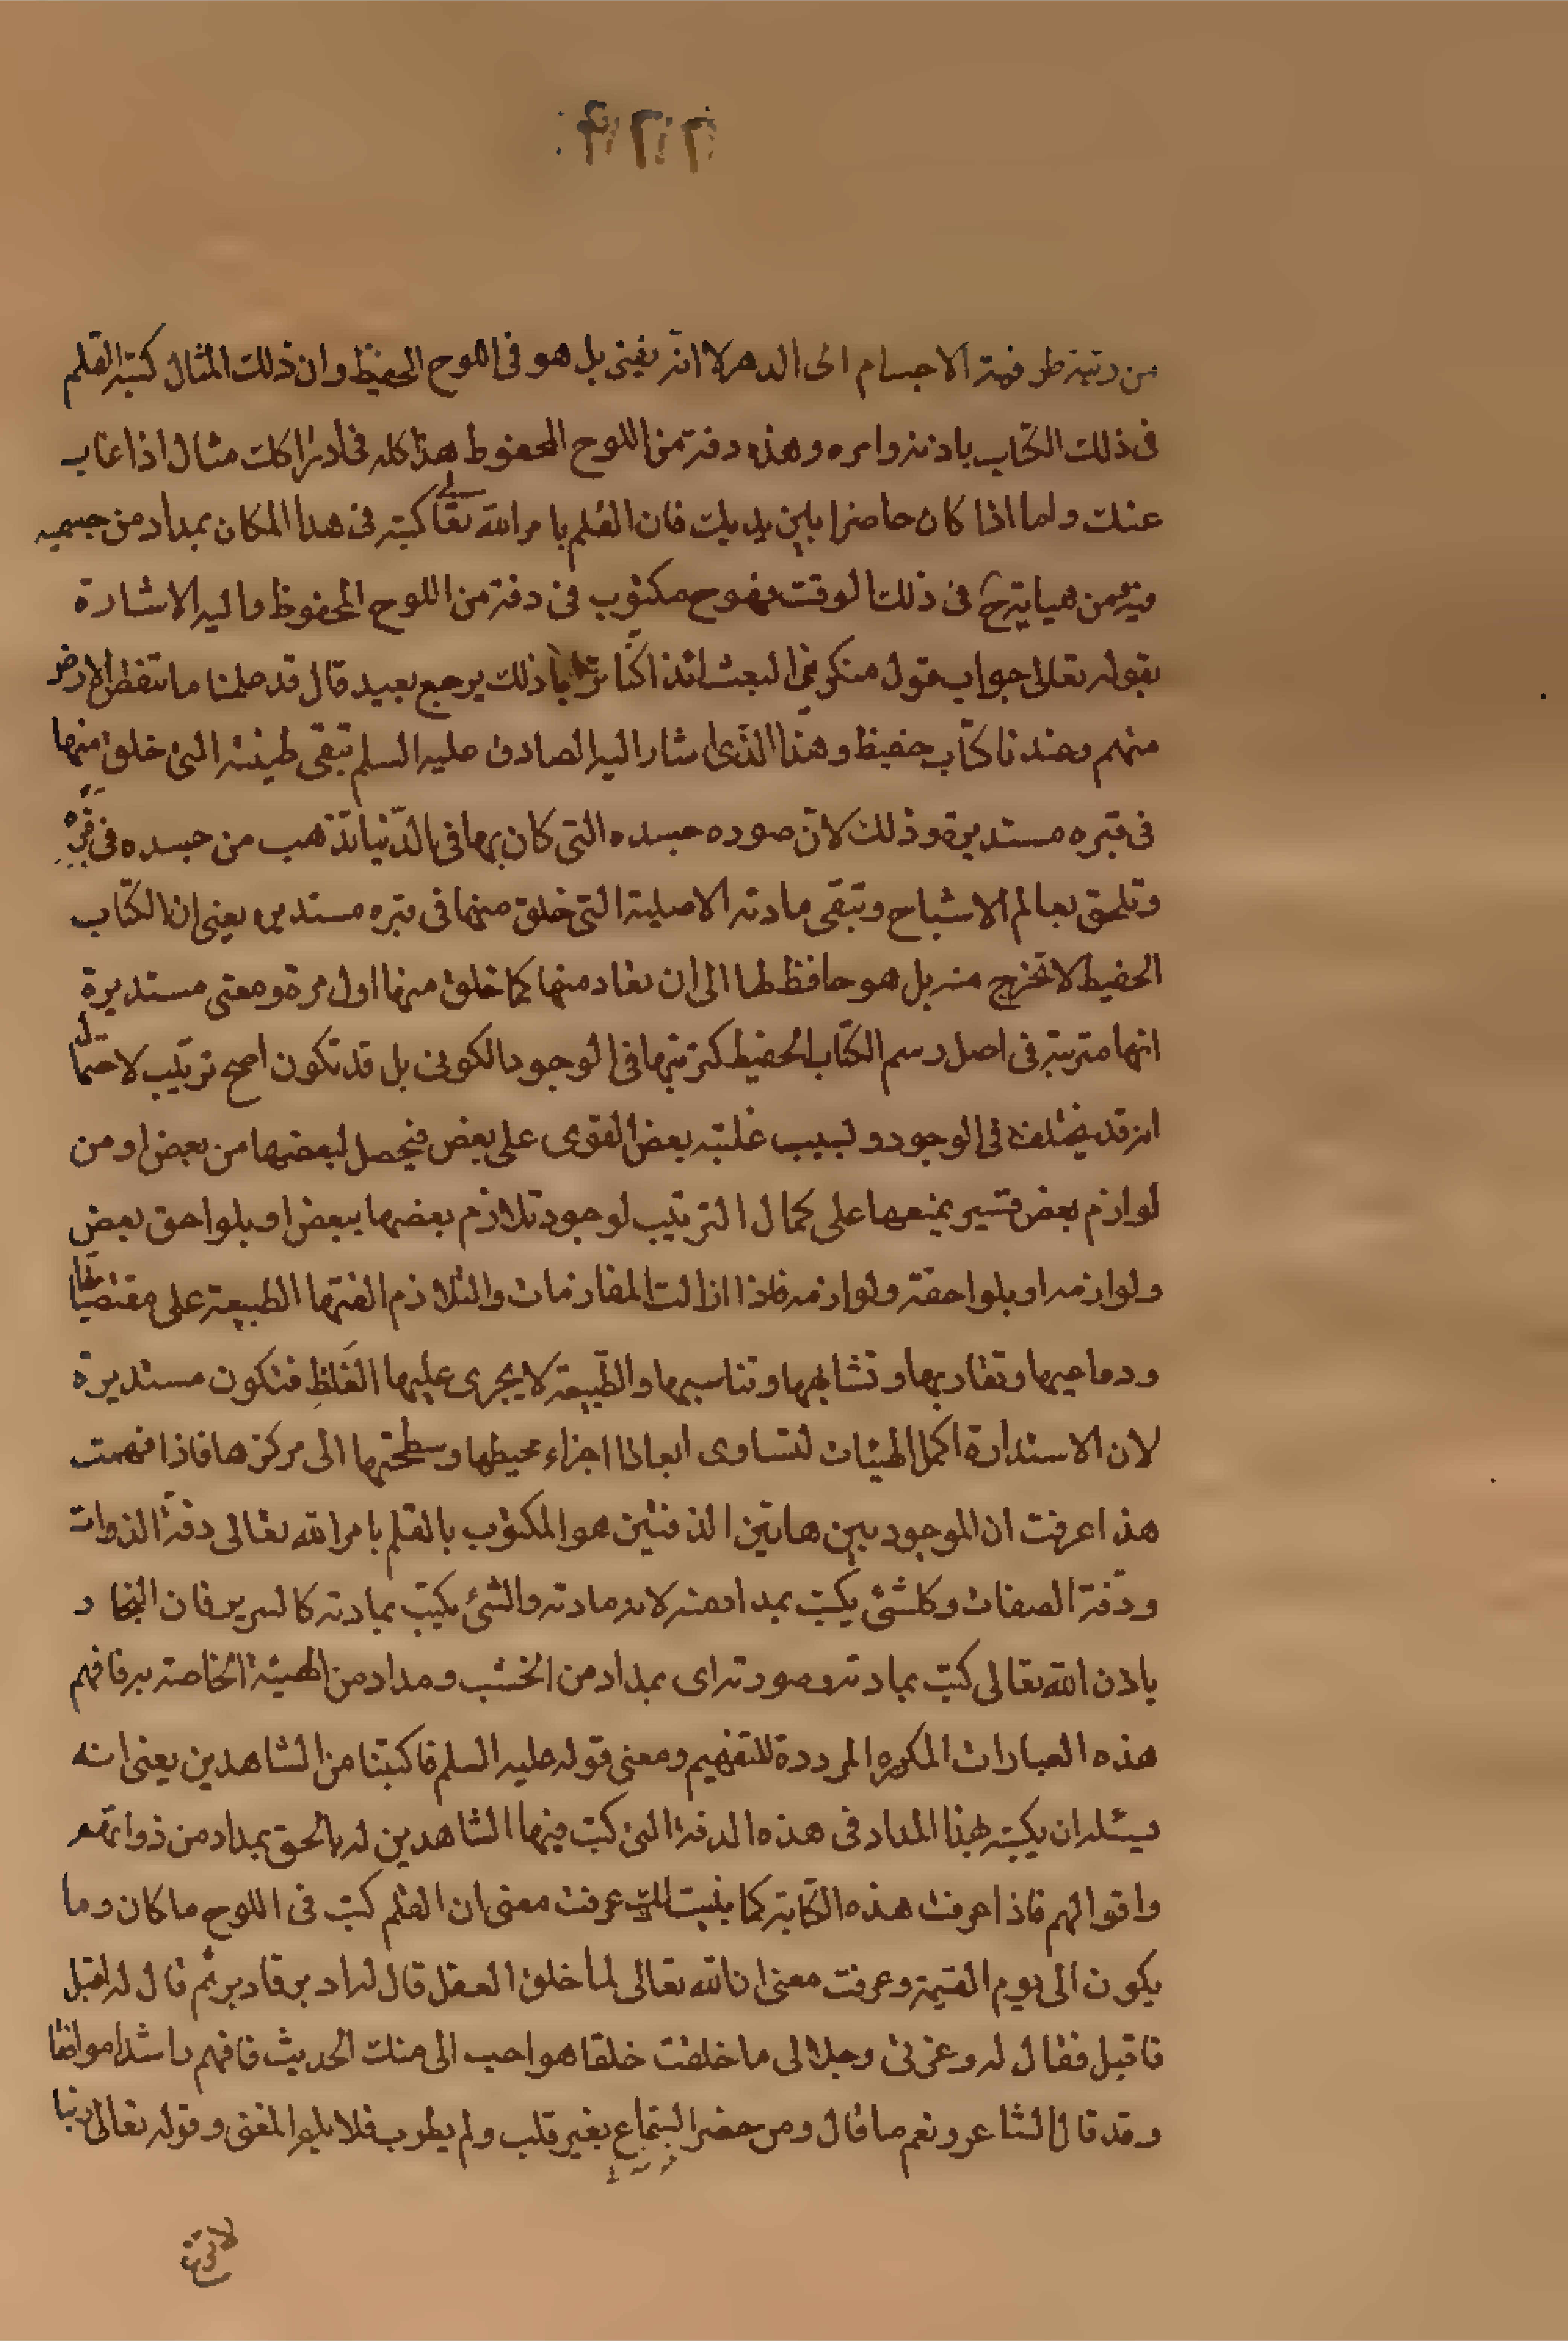 من رتبة ظرفية الاجسام الى الدهر لا انه يفنى بل هو فى اللوح الحفيظ وان ذلك المثال كتبه القلم
فى ذلك الكتاب باذنه وامره وهذه دفة من اللوح المحفوظ هذا كله فى ادراكك مثال اذا غاب
عنك واما اذا كان حاضرا بين يديك فان القلم بامر الله تعالى كتبه فى هذا المكان بمداد من جسميه
فى ذلك الوقت فهو ح مكتوب فى دفة من اللوح المحفوظ واليه الاشارة
بقوله تعالى جواب قول منكرى البعث ائذا كنا ترابا ذلك رجع بعيد قال قد علمنا ما تنقص الارض
منهم وعندنا كتاب حفيظ وهذا الذى اشار اليه الصادق عليه السلم تبقى طينته التى خلق منها
فى قبره مستديرة وذلك لان صوده جسده التى كان بها فى الدنيا تذهب من جسده فى قبره
وتلحق بعالم الاشباح وتبقى مادته الاصلية التى خلق منها فى قبره مستديره يعنى ان الكتاب
الحفيظ لا تخرج منه بل هو حافظ لها الى ان يعاد منها كما خلق منها اول مرة ومعنى مستديرة
انها مترتبة فى اصل رسم الكتاب الحفيظ كترتبها فى الوجود الكونى بل قد تكون اصح ترتيب لاحتمال
انه قد يختلف فى الوجود و لسبب غلبة بعض القوى على بعض فيحصل لبعضها من بعض او من
لوازم بعض قسير يمنعها على كمال الترتيب لوجود تلازم بعضها ببعض او بلواحق بعض
ولوازمه او بلواحقه ولوازمه فاذا ازالت المفازمات والتلازم الفتها الطبيعة على مقتضياتها
ودماحيها وتقاربها وتشابهها وتناسبها والطبيعة لا يجرى عليها الغلظ فتكون مستديرة
لان الاستدارة اكمل الهيئات لتساوى ابعاد اجزاء محيطها وسطحها الى مركزها فاذا فهمت
هذا عرفت ان الموجود بين هاتين الدفتين هو المكتوب بالقلم بامر الله تعالى دفة الذوات
ودفة الصفات وكلشئ يكتب بمداد منه لانه مادته والشئ يكتب بمادته كالسرير فان النجار
باذن الله تعالى كتب بمادته وصورته اى بمداد من الخشب ومداد من الهيئة الخاصة به فافهم
هذه العبارات المكرره المرددة للتفهيم ومعنى قوله عليه السلم فاكتبنا من الشاهدين يعنى انه
يسئله ان يكتبه بهذا المداد فى هذه الدفة التى كتب فيها الشاهدين له بالحق بمداد من ذواتهم
واقوالهم فاذا عرفت هذه الكتابة كما بينت لك عرفت معنى ان القلم كتب فى اللوح ما كان وما
يكون الى يوم القيمة وعرفت معنى ان الله تعالى لما خلق العقل قال له ادبر فادبر ثم قال له اقبل
فاقبل فقال له وعزتى وجلالى ما خلقت خلقا هو احب الى منك الحديث فافهم راشدا موافقا
وقد قال الشاعر ونعم ما قال ومن حضر السماع بغير قلب ولم يطرب فلا يلم المغنى وقوله تعالى ربنا